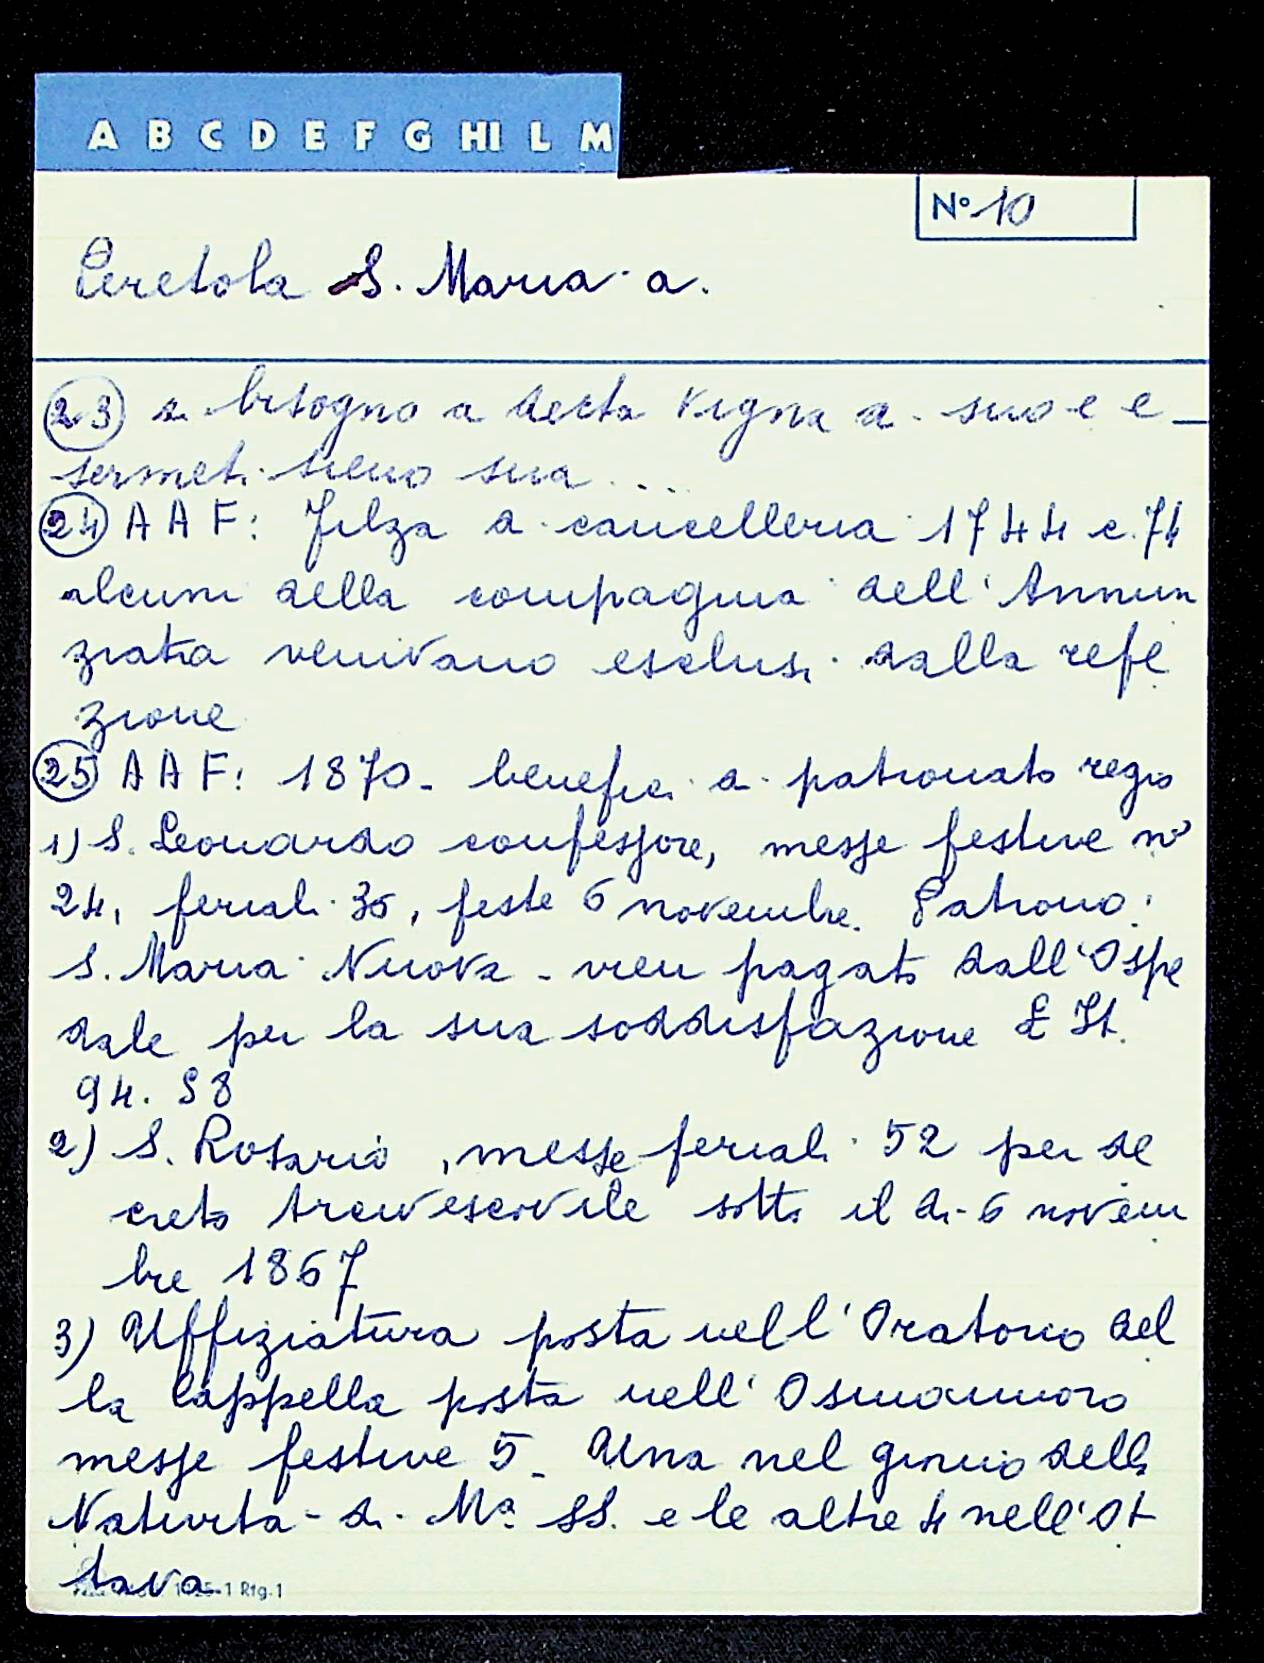 A B C D E F G HI L M
N° 10
Peretola S. Maria a.
23 a bisogno a detta vigna a. suo e e_
sermeti sieno sua ....
24 A A F: Filza di cancelleria 1744 c. 74
alcuni della compagnia dell'Annun
ziata venivano esclusi dalla refe
zione
25 A A F: 1870 - benefici di patronato regio
1) S. Leonardo confessore, messe festive n°
24, feriali 36, feste 6 novembre. Patrono:
S. Maria Nuova - vien pagato dall'Ospe
dale per la sua soddisfazione £ It.
94. 58
2) S. Rosario, messe feriali 52 per de
creto arcivescovile sotto il di 6 novem
bre 1867
3) Uffiziatura posta nell'Oratorio del
la Cappella posta nell'Osmannoro
messe festive 5 - Una nel giorno della
Natività di Mª SS. e le altre 4 nell'Ot
tava
-1 Rfg.1